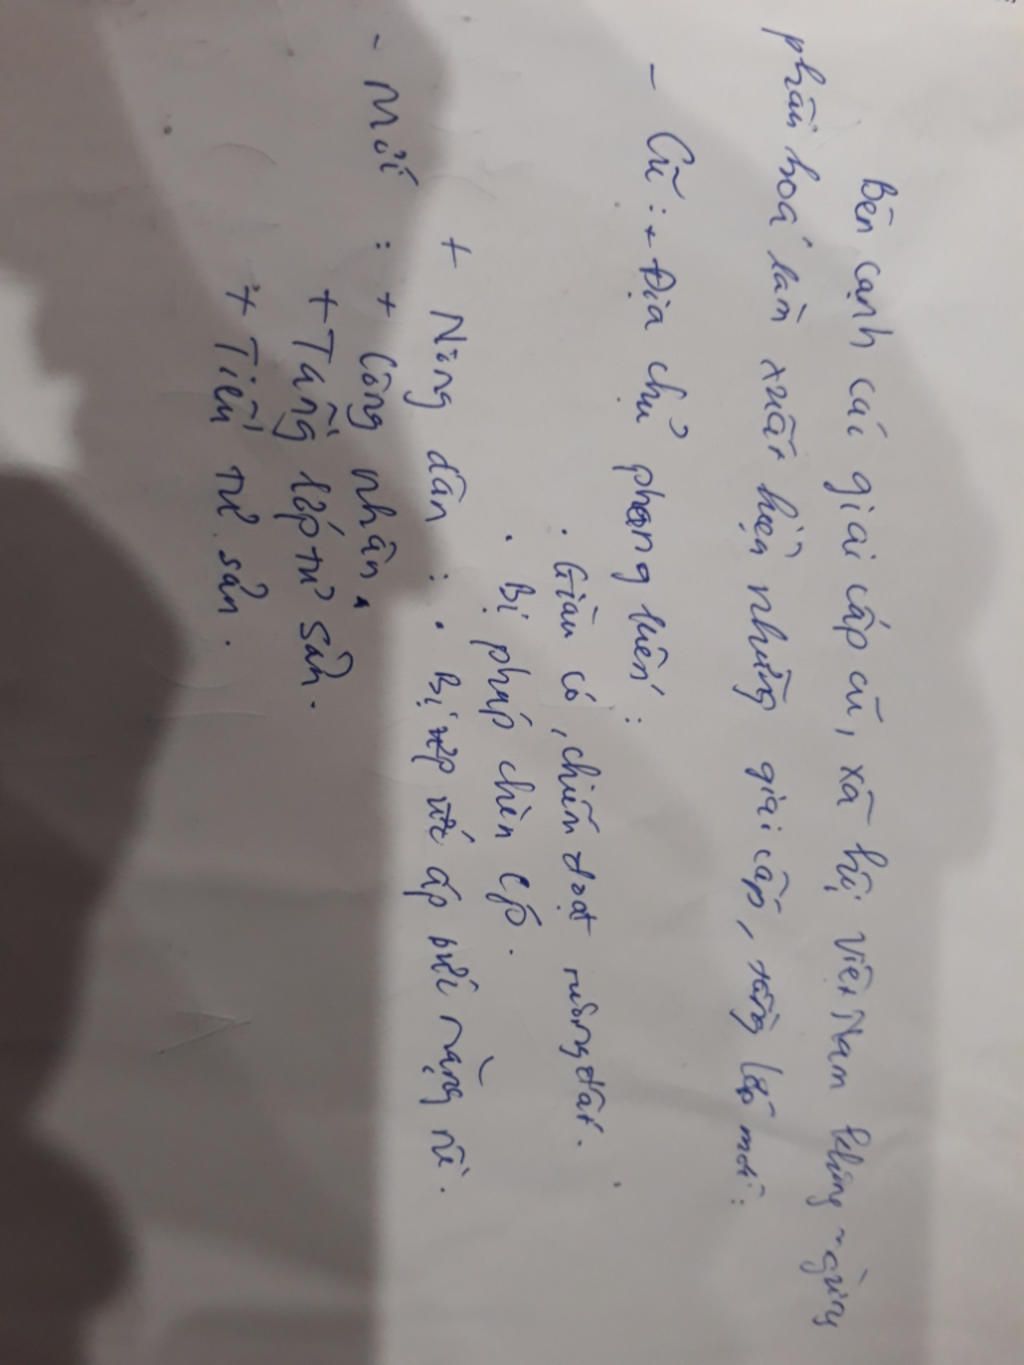 Bên cạnh các giai cấp cũ, xã hội Việt Nam không ngừng
phân hoá làm xuất hiện những giai cấp, tầng lớp mới:
- Cũ: + Địa chủ phong kiến:
. Giàu có, chiếm đoạt ruộng đất.
. Bị pháp chèn ép.
+ Nông dân: . Bị áp bức nặng nề.
- Mới: + Công nhân.
+ Tầng lớp tư sản.
+ Tiểu tư sản.